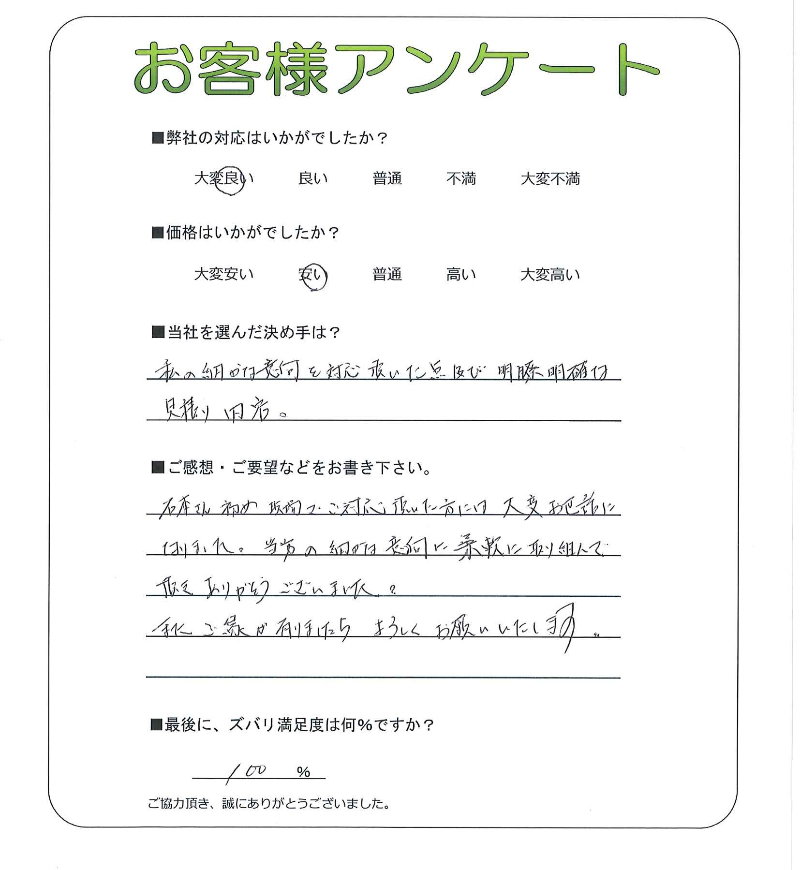 お客様アンケート
■弊社の対応はいかがでしたか？
大変良い 良い 普通 不満 大変不満
■価格はいかがでしたか？
大変安い 安い 普通 高い 大変高い
■当社を選んだ決め手は？
私の細かな意向を対応頂いた点及び明瞭明確な
見積り内容。
■ご感想・ご要望などをお書き下さい。
石本さん初め 次でご対応頂いた方には大変お世話に
なりました。当方の細かな意向に柔軟に取り組んで
頂きありがとうございました。
またご縁が有りましたらよろしくお願いいたします。
■最後に、ズバリ満足度は何％ですか？
100 ％
ご協力頂き、誠にありがとうございました。